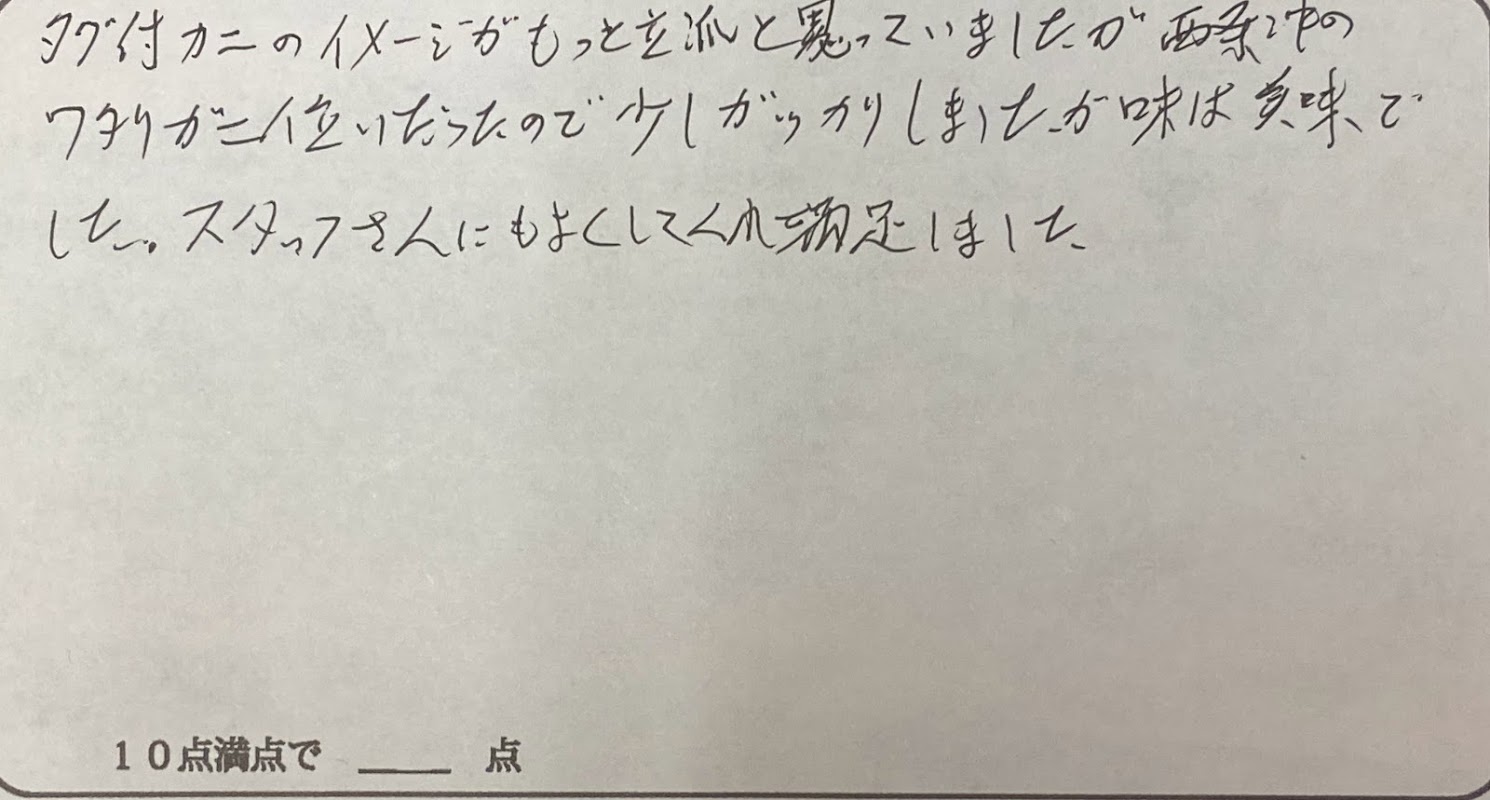 タグ付カニのイメージがもっと立派と思っていましたが西条沖の
ワタリガニ位いだったので少しガッカリしましたが味は美味で
した。スタッフさんにもよくしてくれ満足しました
10点満点で ____ 点